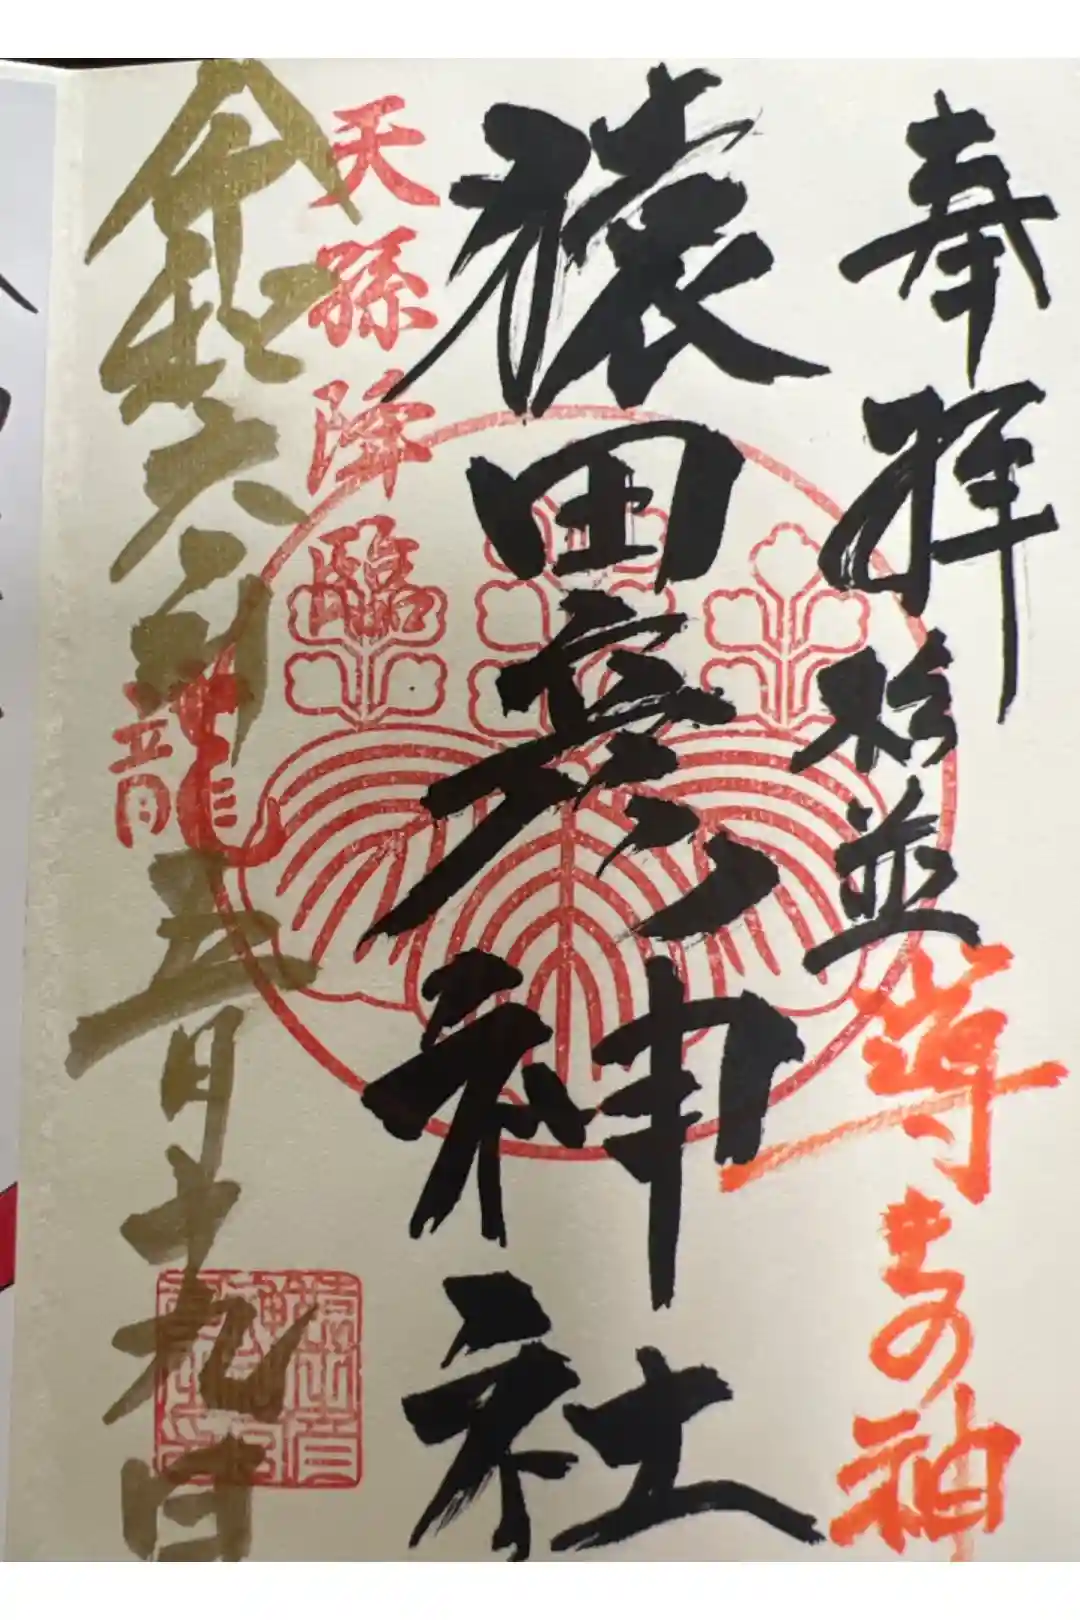 奉拝 松並 導きの神
猿田彦神社
天孫降臨
令和六年五月十九日
龍